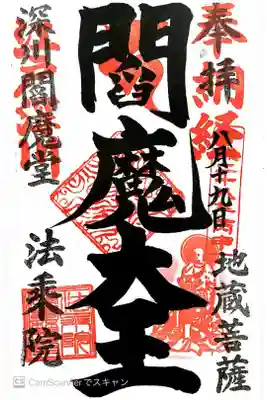 奉拝
八月十九日
地蔵菩薩
閻魔大王
深川閻魔堂
法乗院
CamScannerでスキャン